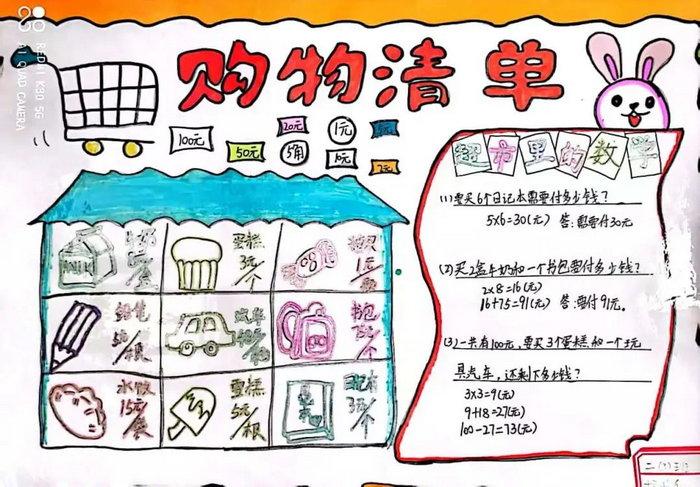 REDMI K30 5G
AI QUAD CAMERA
购物清单
100元
50元
20元
1元
5角
超市里的数学
(1)要买6个日记本需要付多少钱?
5x6=30(元) 答:需要付30元
(2)买2盒牛奶和一个书包要付多少钱?
2x8=16(元)
16+75=91(元) 答:要付91元.
(3)一共有100元,要买3个蛋糕和一个玩
具汽车,还剩下多少钱?
3x3=9(元)
9+18=27(元)
100-27=73(元)
MILK
蛋糕
3元/个
铅笔
汽车
书包
水饺
15元/袋
雪糕
5元/根